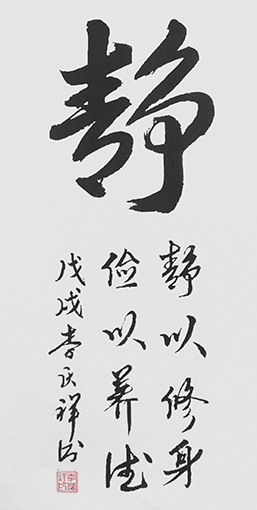 静
静以修身
俭以养德
戊戌李庆祥书